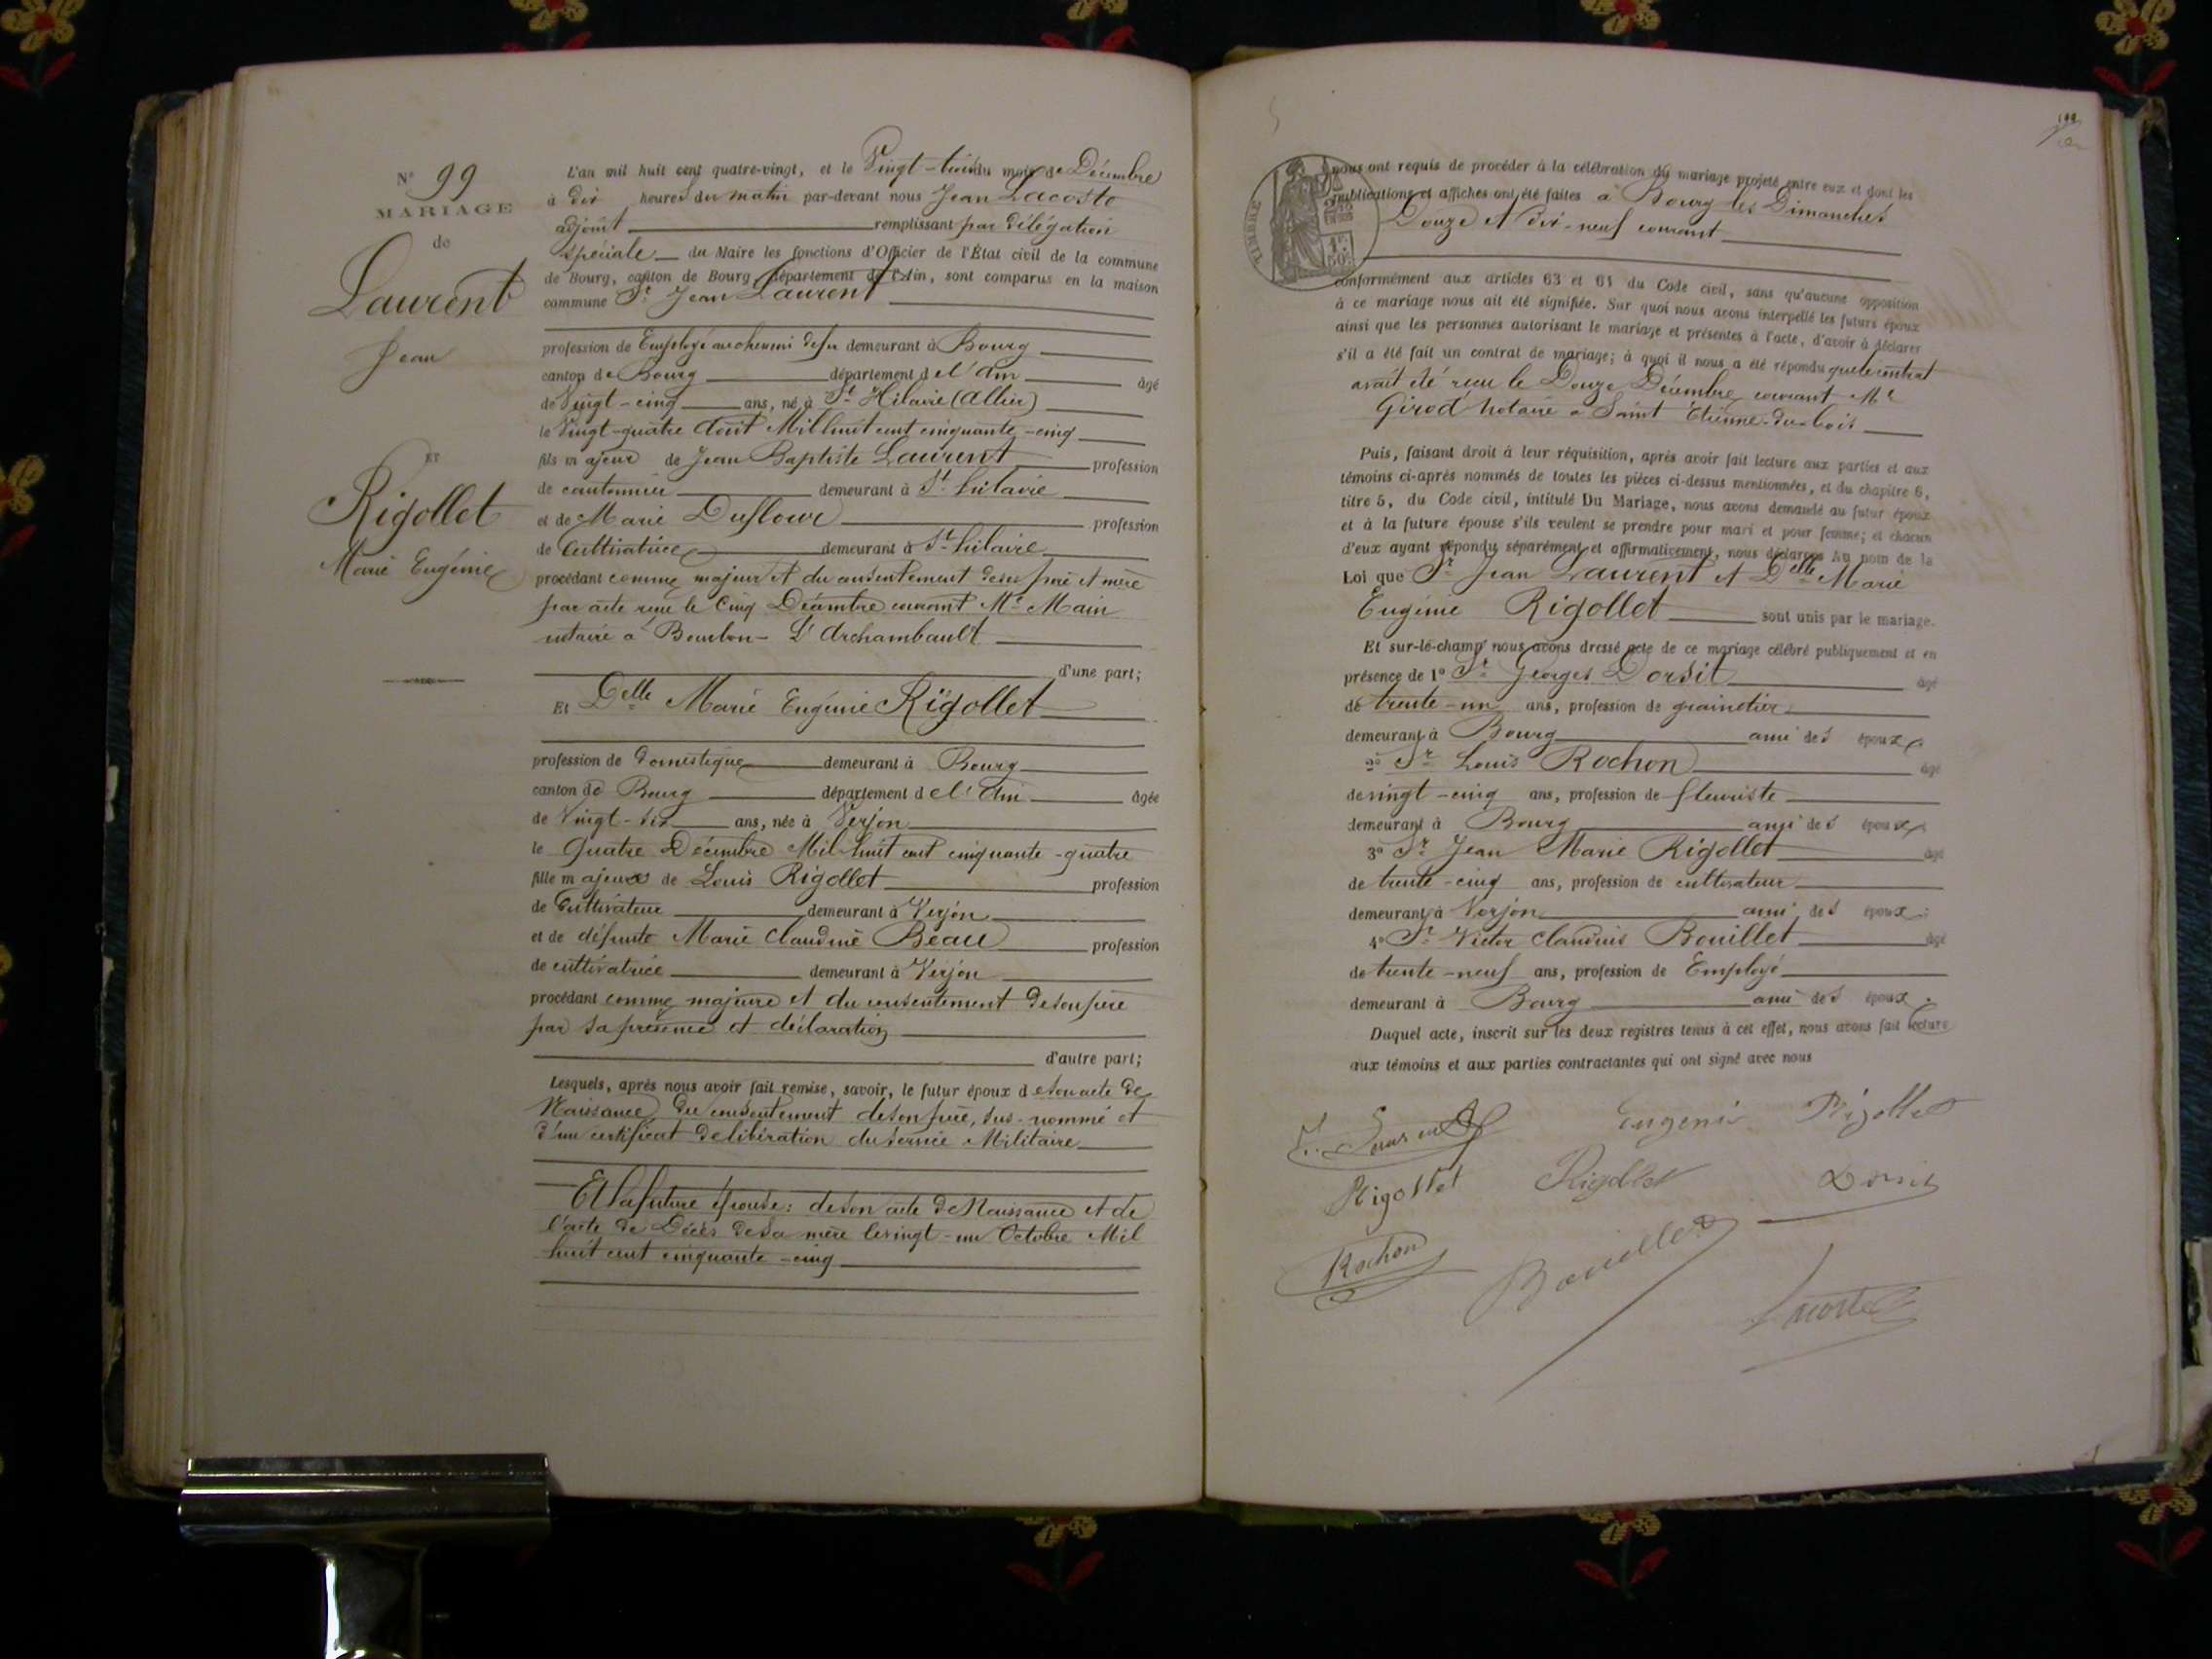 N° 99
MARIAGE
de
Laurent
Jean
ET
Rigollet
Marie Eugénie
L'an mil huit cent quatre-vingt, et le Vingt-trois du mois de Décembre
à dix heures du matin par-devant nous Jean Lacoste
adjoint remplissant par délégation
spéciale du Maire les fonctions d'Officier de l'État civil de la commune
de Bourg, canton de Bourg, département de l'Ain, sont comparus en la maison
commune Sr Jean Laurent
profession de Employé au chemin de fer demeurant à Bourg
canton de Bourg département de l'Ain âgé
de Vingt-cinq ans, né à St Hilaire (Allier)
le Vingt-quatre Août Mil huit cent cinquante-cinq
fils majeur de Jean Baptiste Laurent profession
de cantonnier demeurant à St hilaire
et de Marie Duflour profession
de Cultivatrice demeurant à St hilaire
procédant comme majeur et du consentement de ses père et mère
par acte reçu le Cinq Décembre courant Me Main
notaire à Bourbon-L'Archambault
d'une part;
Et Delle Marie Eugénie Rigollet
profession de domestique demeurant à Bourg
canton de Bourg département de l'Ain âgée
de Vingt-six ans, née à Verjon
le Quatre Décembre Mil huit cent cinquante-quatre
fille majeure de Louis Rigollet profession
de Cultivateur demeurant à Verjon
et de défunte Marie Claudine Beau profession
de cultivatrice demeurant à Verjon
procédant comme majeure et du consentement de son père
par sa présence et déclaration
d'autre part;
Lesquels, après nous avoir fait remise, savoir, le futur époux de son acte de
Naissance du consentement de son père, sus-nommé et
d'un certificat de libération du service Militaire
Et la future épouse: de son acte de Naissance et de
l'acte de Décès de sa mère le vingt-un Octobre Mil
huit cent cinquante-cinq
TIMBRE
1F 50c
nous ont requis de procéder à la célébration du mariage projeté entre eux et dont les
publications et affiches ont été faites à Bourg les Dimanches
Douze et dix-neuf courant
conformément aux articles 63 et 64 du Code civil, sans qu'aucune opposition
à ce mariage nous ait été signifiée. Sur quoi nous avons interpellé les futurs époux
ainsi que les personnes autorisant le mariage et présentes à l'acte, d'avoir à déclarer
s'il a été fait un contrat de mariage; à quoi il nous a été répondu que le contrat
avait été reçu le Douze Décembre courant Me
Girod notaire à Saint Etienne-du-bois
Puis, faisant droit à leur réquisition, après avoir fait lecture aux parties et aux
témoins ci-après nommés de toutes les pièces ci-dessus mentionnées, et du chapitre 6,
titre 5, du Code civil, intitulé Du Mariage, nous avons demandé au futur époux
et à la future épouse s'ils veulent se prendre pour mari et pour femme; et chacun
d'eux ayant répondu séparément et affirmativement, nous déclarons Au nom de la
Loi que Sr Jean Laurent et Delle Marie
Eugénie Rigollet sont unis par le mariage.
Et sur-le-champ nous avons dressé acte de ce mariage célébré publiquement et en
présence de 1° Sr Georges Dorsit âgé
de trente-un ans, profession de grainetier
demeurant à Bourg ami des époux
2° Sr Louis Rochon âgé
de vingt-cinq ans, profession de fleuriste
demeurant à Bourg ami des époux
3° Sr Jean Marie Rigollet âgé
de trente-cinq ans, profession de cultivateur
demeurant à Verjon ami des époux
4° Sr Victor Claudius Bouillet âgé
de trente-neuf ans, profession de Employé
demeurant à Bourg ami des époux.
Duquel acte, inscrit sur les deux registres tenus à cet effet, nous avons fait lecture
aux témoins et aux parties contractantes qui ont signé avec nous
Eugenie Rigollet
Rigollet Rigollet Dorsit
Rochon Bouillet
Lacoste